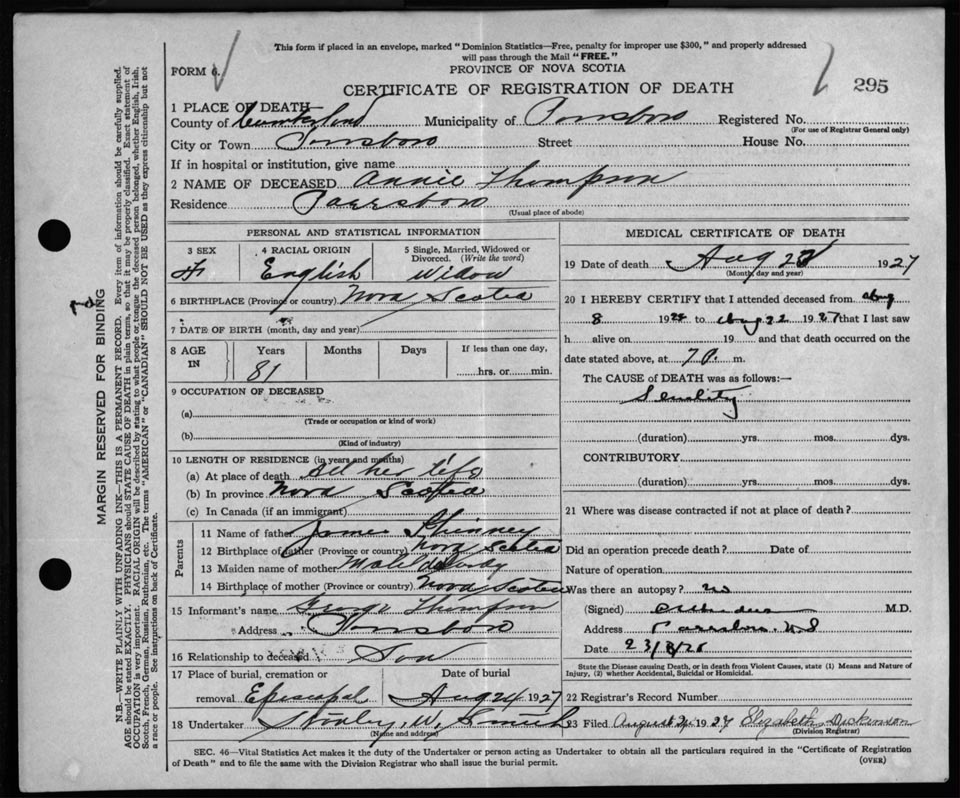 This form if placed in an envelope, marked "Dominion Statistics—Free, penalty for improper use $300," and properly addressed
will pass through the Mail "FREE."
FORM 6.
PROVINCE OF NOVA SCOTIA
CERTIFICATE OF REGISTRATION OF DEATH
295
1 PLACE OF DEATH—
County of Cumberland Municipality of Parrsboro Registered No.
(For use of Registrar General only)
City or Town Parrsboro Street House No.
If in hospital or institution, give name
2 NAME OF DECEASED Annie Thompson
Residence Parrsboro
(Usual place of abode)
PERSONAL AND STATISTICAL INFORMATION
3 SEX
4 RACIAL ORIGIN
5 Single, Married, Widowed or Divorced. (Write the word)
F English Widow
6 BIRTHPLACE (Province or country) Nova Scotia
7 DATE OF BIRTH (month, day and year)
8 AGE IN
Years Months Days If less than one day,
81
hrs. or min.
9 OCCUPATION OF DECEASED
(a)
(Trade or occupation or kind of work)
(b)
(Kind of industry)
10 LENGTH OF RESIDENCE (in years and months)
(a) At place of death All her life
(b) In province Nova Scotia
(c) In Canada (if an immigrant)
Parents
11 Name of father James Phinney
12 Birthplace of father (Province or country) Nova Scotia
13 Maiden name of mother Matilda
14 Birthplace of mother (Province or country) Nova Scotia
15 Informant's name George Thompson
Address Parrsboro
16 Relationship to deceased Son
17 Place of burial, cremation or removal Episcopal
Date of burial
Aug 24 1927
18 Undertaker Stanley W. Smith
(Name and address)
MEDICAL CERTIFICATE OF DEATH
19 Date of death Aug 1927
(Month, day and year)
20 I HEREBY CERTIFY that I attended deceased from Aug
8 19 to Aug 22 1927 that I last saw
h alive on 19 and that death occurred on the
date stated above, at 7 P. m.
The CAUSE of DEATH was as follows:—
Senility
(duration) yrs. mos. dys.
CONTRIBUTORY
(duration) yrs. mos. dys.
21 Where was disease contracted if not at place of death?
Did an operation precede death? Date of
Nature of operation
Was there an autopsy? no
(Signed) M.D.
Address Parrsboro, N S
Date
State the Disease causing Death, or in death from Violent Causes, state (1) Means and Nature of
Injury, (2) whether Accidental, Suicidal or Homicidal.
22 Registrar's Record Number
23 Filed August 24 1927 Elizabeth Dickinson
(Division Registrar)
SEC. 46—Vital Statistics Act makes it the duty of the Undertaker or person acting as Undertaker to obtain all the particulars required in the "Certificate of Registration
of Death" and to file the same with the Division Registrar who shall issue the burial permit.
(OVER)
MARGIN RESERVED FOR BINDING
N.B.—WRITE PLAINLY WITH UNFADING INK—THIS IS A PERMANENT RECORD. Every item of information should be carefully supplied.
AGE should be stated EXACTLY. PHYSICIANS should STATE CAUSE OF DEATH in plain terms, so that it may be properly classified. Exact statement of
OCCUPATION is very important. RACIAL ORIGIN will be described by stating to what people or tongue the deceased person belonged, whether English, Irish,
Scotch, French, German, Russian, Ruthenian, etc. The terms "AMERICAN" or "CANADIAN" SHOULD NOT BE USED as they express citizenship but not
a race or people. See instructions on back of Certificate.